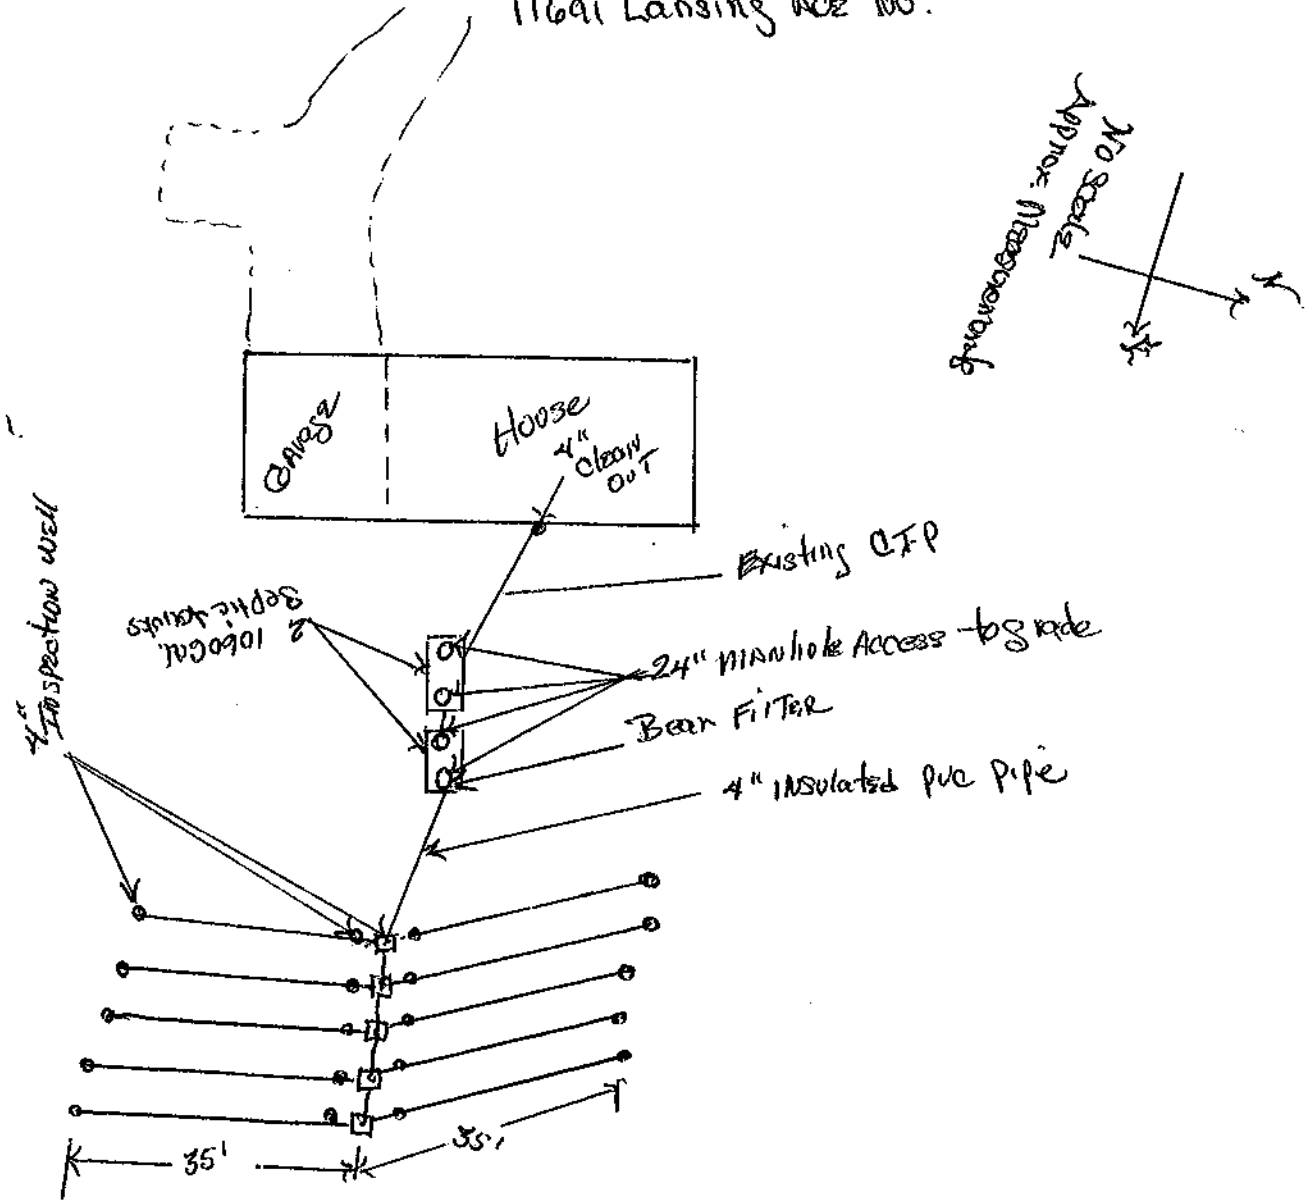 11691 Lansing Ave No.
No Scale
Approx. Measurements
N
Garage
House
4"
Clean
Out
4"
Inspection Well
Existing CIP
2 1060 Gal.
Septic Tanks
24" Manhole Access to grade
Bear Filter
4" Insulated PVC Pipe
35'
35'